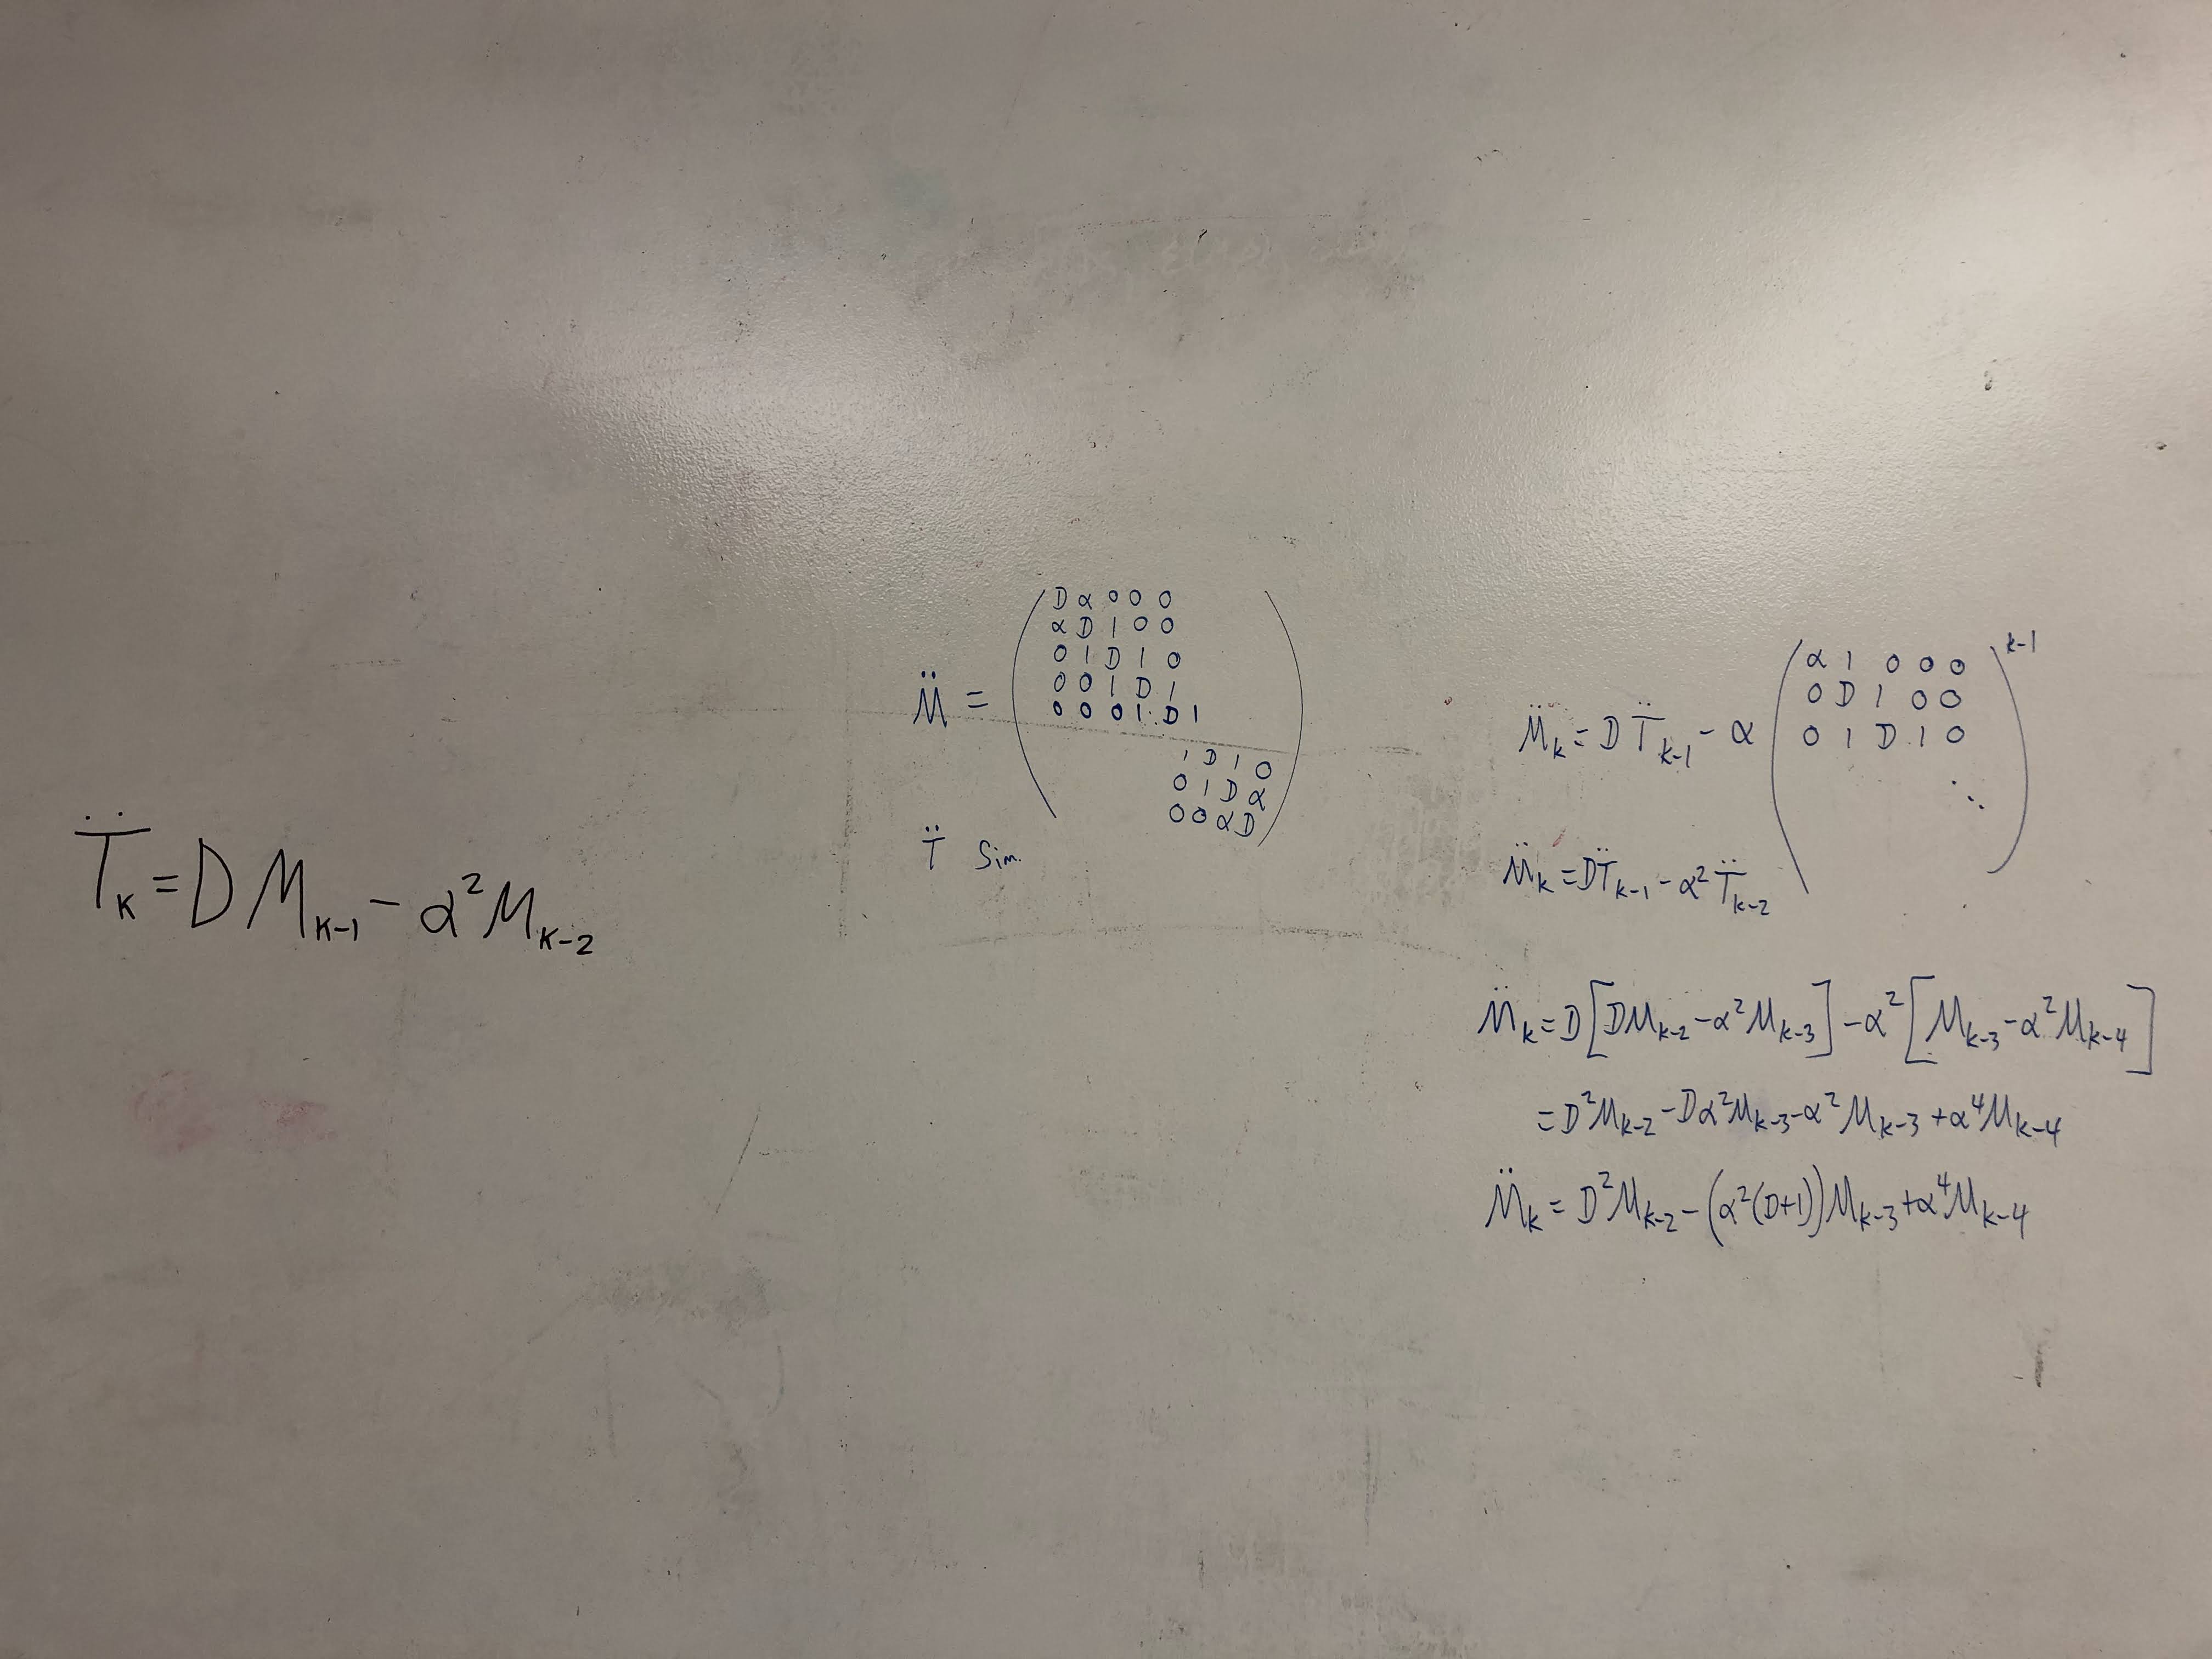 T̈ₖ = D Mₖ₋₁ − α² Mₖ₋₂
M̈ =
D α 0 0 0
α D 1 0 0
0 1 D 1 0
0 0 1 D 1
0 0 0 1 D 1
1 D 1 0
0 1 D α
0 0 α D
T̈ Sim.
M̈ₖ = D T̈ₖ₋₁ − α
α 1 0 0 0
0 D 1 0 0
0 1 D 1 0
⋱
k-1
M̈ₖ = D T̈ₖ₋₁ − α² T̈ₖ₋₂
M̈ₖ = D[DMₖ₋₂ − α²Mₖ₋₃] − α²[Mₖ₋₃ − α²Mₖ₋₄]
= D²Mₖ₋₂ − Dα²Mₖ₋₃ − α²Mₖ₋₃ + α⁴Mₖ₋₄
M̈ₖ = D²Mₖ₋₂ − (α²(D+1))Mₖ₋₃ + α⁴Mₖ₋₄